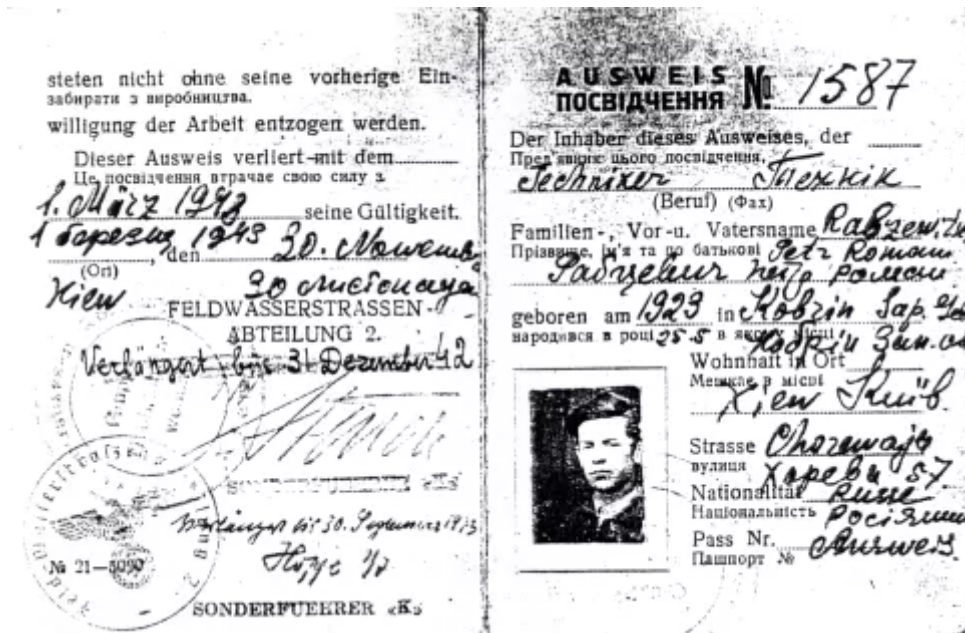 steten nicht ohne seine vorherige Ein-
забирати з виробництва.
willigung der Arbeit entzogen werden.
Dieser Ausweis verliert mit dem
Це посвідчення втрачає свою силу з
1. März 1943 seine Gültigkeit.
1 березня 1943, den 30. Novemb
(Ort)
Kiew 30 листопада
FELDWASSERSTRASSEN-
ABTEILUNG 2.
Verlängert bis 31 Dezember 42
Verlängert bis 30. September 1943
№ 21—5090
SONDERFUEHRER «K»
AUSWEIS № 1587
ПОСВІДЧЕННЯ
Der Inhaber dieses Ausweises, der
Пред'явник цього посвідчення,
Techniker Технік
(Beruf) (Фах)
Familien-, Vor-u. Vatersname
Прізвище, ім'я та по батькові Petr Romann
Рабцевич Петр Романн
geboren am 1923 in Kobrin
народився в році 25.5 в якому місці Кобрін Зап.
Wohnhaft in Ort
Мешкає в місці
Kiew Київ.
Strasse
вулиця 57.
Nationalität Russe
Національність
Pass Nr. Ausweis.
Пашпорт №